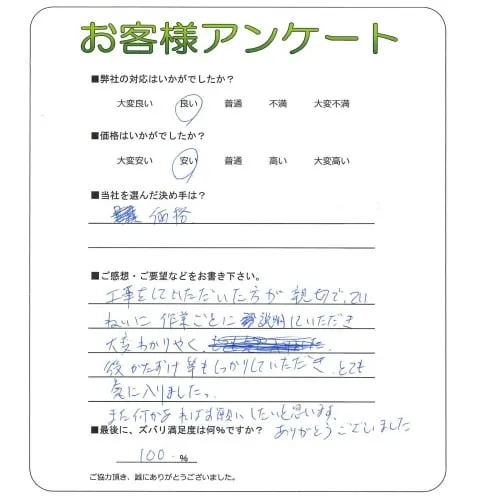 お客様アンケート
■弊社の対応はいかがでしたか？
大変良い 良い 普通 不満 大変不満
■価格はいかがでしたか？
大変安い 安い 普通 高い 大変高い
■当社を選んだ決め手は？
価格
■ご感想・ご要望などをお書き下さい。
工事をしていただいた方が親切で、てい
ねいに作業ごとに説明していただき
大変わかりやく、
後かたずけ等もしっかりしていただき、とても
気に入りました。
また何かあればお願いしたいと思います。
ありがとうございました
■最後に、ズバリ満足度は何％ですか？
100 %
ご協力頂き、誠にありがとうございました。